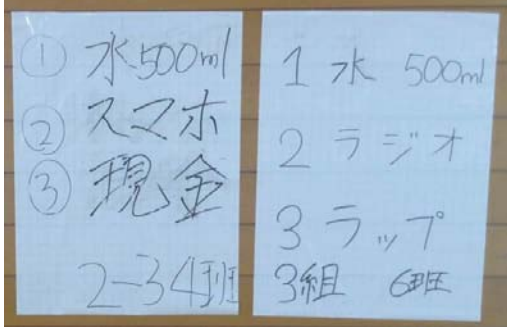 ① 水500ml
② スマホ
③ 現金
2-34班
1 水 500ml
2 ラジオ
3 ラップ
3組 6班